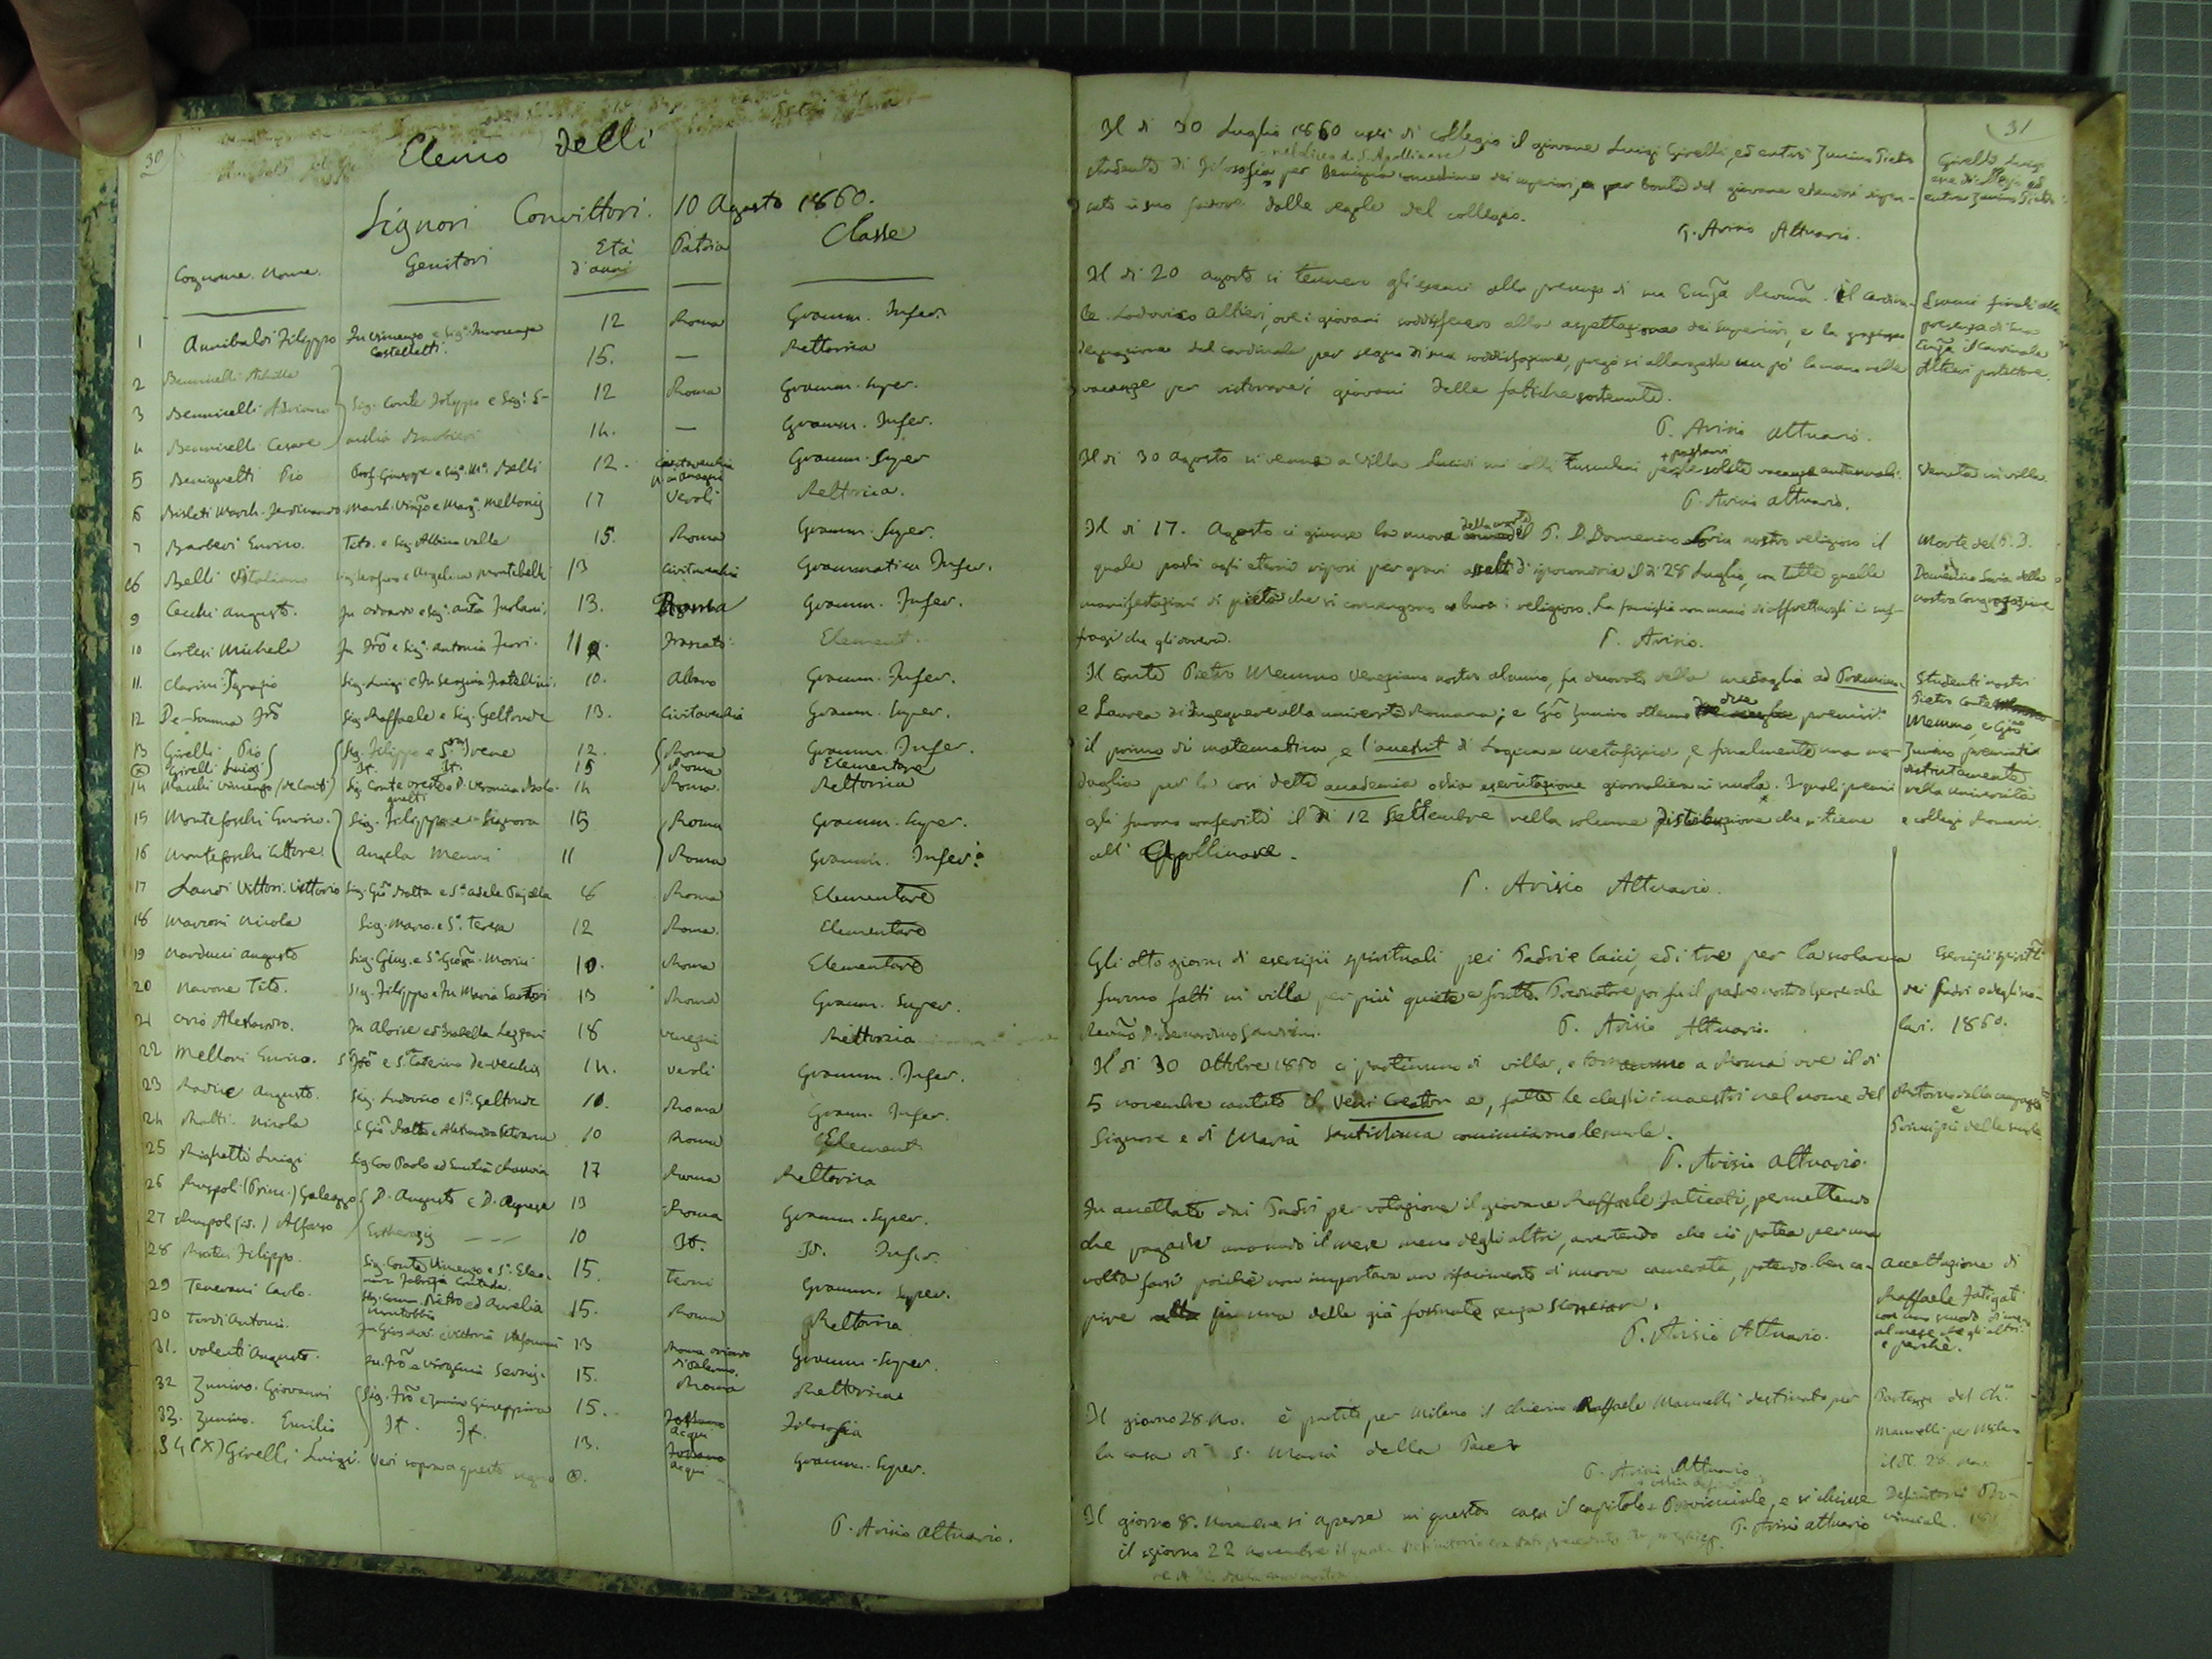 30
Elenco delli
Signori Convittori. 10 Agosto 1860.
Cognome. Nome. Genitori Età d'anni Patria Classe
1 Annibaldi Filippo Fu Vincenzo e Sig.ª Innocenza Castelletti. 12 Roma Gramm. Infer.
2 Bennicelli Achille 15. — Rettorica
3 Bennicelli Adriano Sig. Conte Filippo e Sig.ª E- 12 Roma Gramm. Super.
4 Bennicelli Cesare milia Barbieri 14. — Gramm. Infer.
5 Benignetti Pio Prof. Giuseppe e Sig.ª Mª. Belli 12. Civitavecchia Gramm. Super
6 Bisleti March. Ferdinando March. Vinčo e Marª. Mellonij 17 Veroli Rettorica.
7 Barberi Enrico. Tito. e Sig. Albina Valle 15. Roma Gramm. Super.
8 Belli Vitaliano Angelica Montibelli 13 Civitavecchia Grammatica Infer.
9 Cecchi Augusto. Fu Odoardo e Sigª. Anta Furlani. 13. Roma Gramm. Infer.
10 Cortesi Michele Fu Frō e Sigª. Antonia Fiori. 11 Frascati Element.
11. Clarini Ignazio Sig. Luigi e Fu Serafina Fratellini. 10. Albano Gramm. Infer.
12 De-Somma Frō Sig. Raffaele e Sig. Geltrude 13. Civitavecchia Gramm. Super.
13 Girelli Pio Sig. Filippo e Sª. Irene 12. Roma Gramm. Infer.
(x) Girelli Luigi It. It. 15 Roma Elementare
14 Macchi Vincenzo (de Conti) Sig. Conte Oreste e D. Veronica Paolo- 14 Roma. Rettorica
15 Montefoschi Enrico. Sig. Filippo e Signora 15 Roma Gramm. Super.
16 Montefoschi Ettore. Angela Menni 11 Roma Gramm. Infer.
17 Landi Vittori. Vittorio Sig. Giō Batta e Sª Adele 8 Roma Elementare
18 Marconi Nicola Sig. Marco e Sª. Teresa 12 Roma. Elementare
19 Narducci Augusto Sig. Gius. e Sª. Giovª. Morini 10. Roma Elementare
20 Navone Tito. Sig. Filippo e Fu Maria Santori 13 Roma Gramm. Super.
21 Orio Alessandro. Fu Aloise ed Isabella Lezzani 18 Venezia Rettorica
22 Melloni Enrico. Sª Frō e Sª Caterina De-Vecchis 14. Veroli Gramm. Infer.
23 Radice Augusto. Sig. Ludovico e Sª. Geltrude 10. Roma Gramm. Infer.
24 Ratti. Nicola S Giō Batta e Alessandra 10 Roma Element
25 Righetti Luigi Sig Cav Paolo ed Emilia 17 Roma Rettorica
26 Ruspoli (Princ.) Galeazzo D. Augusto e D. Agnese 13 Roma Gramm. Super.
27 Ruspoli (id.) Alfonso Estherazy — — 10 It. It. Infer.
28 Filippo. Sig. Conte Vincenzo e Sª. Eleo- nora Fabrizi Contesse. 15. Terni Gramm. Super.
29 Tenerani Carlo. Sig. Comm. Pietro ed Aurelia Montobbio 15. Roma Rettorica
30 Tordi Antonio. Vittoria 13 Roma oriundo di Palermo. Gramm. Super.
31. Valenti Augusto. Fu Frō e Virginia 15. Roma Rettorica
32 Zunino. Giovanni Sig. Frō e Zunino Giuseppina 15. Acqui Filosofia
33. Zunino. Emilio It. It. 13. Acqui Gramm. Super.
34 (X) Girelli Luigi. Vedi sopra a questo segno (x).
P. Avisio Attuario.
31
Il dì 30 Luglio 1860 uscì di collegio il giovane Luigi Girelli, ed entrò Zunino Pietro
nel liceo di S. Apollinare
studente di Filosofia per benigna concessione dei superiori, e per bontà del giovane essendosi dispen-
sato in suo favore dalle regole del collegio.
P. Avisio Attuario.
Girelli Luigi
esce di Collegio ed
entra Zunino Pietro
Il dì 20 agosto si tennero gli esami alla presenza di sua Emza Revma. il Cardina-
le Lodovico Altieri, ove i giovani soddisfecero alla aspettazione dei Superiori, e la graziosa
degnazione del cardinale per segno di sua soddisfazione, pregò si allargasse un pò la mano nelle
vacanze per ristorare i giovani delle fatiche sostenute.
P. Avisio attuario.
Esami finali alla
presenza di Sua
Emza il Cardinale
Altieri protettore.
Il dì 30 agosto si venne a Villa Lucidi sui colli Tusculani + passarvi le solite vacanze autunnali.
P. Avisio attuario.
Venuta in villa
Il dì 17. Agosto ci giunse la nuova della morte del P. D. Domenico Soria nostro religioso il
quale passò agli eterni riposi per gravi assalti di ipocondria il dì 28 Luglio, con tutte quelle
manifestazioni di pietà che si convengono a buoni religiosi. La famiglia non mancò di affrettargli i suf-
fragi che gli doveva.
P. Avisio.
Morte del P. D.
Domenico Soria della
nostra Congregazione
Il Conte Pietro Memmo Veneziano nostro alunno, fu decorato della medaglia ad Praemium
e Laurea di Ingegnere alla università Romana; e Giō Zunino ottenne due premi:
il primo di matematica, e l'accessit di Logica e metafisica, e finalmente una me-
daglia per la così detta accademia ossia esercitazione giornaliera in scuola. I quali premi
gli furono conferiti il dì 12 Settembre nella solenne distribuzione che si tiene
all' Apollinare.
P. Avisio Attuario.
Studenti nostri
Pietro Conte
Memmo e Giō
Zunino premiati
distintamente
nella università
e collegi Romani.
Gli otto giorni di esercizi spirituali pei Padri e laici, ed i tre per la scolaresca
furono fatti in villa per più quiete e frutto. Predicatore poi fu il padre nostro generale
Revmo D. Bernardino Sandrini.
P. Avisio Attuario.
Esercizi spiritli
dei Padri e degli sco-
lari. 1860.
Il dì 30 Ottobre 1860 ci partimmo di villa, e tornammo a Roma ove il dì
5 novembre cantato il Veni Creator e, fatte le classi i maestri nel nome del
Signore e di Maria Santissima cominciarono le scuole.
P. Avisio attuario.
Ritorno dalla campagna
Principii delle scuole
Fu accettato dai Padri per votazione il giovane Raffaele Faticati, permettendo
che pagasse uno scudo il mese meno degli altri, avertendo che ciò potea per una
volta farsi poichè non importava un rifacimento di nuova camerata, potendo ben ca-
pire in una delle già formate senza sconciare.
P. Avisio Attuario.
Accettazione di
Raffaele Fatigati
con uno scudo di meno
al mese de gli altri.
e perchè.
Il giorno 28 No. è partito per Milano il chierico Raffaele Mannelli destinato per
la casa di S. Maria della Pace
P. Avisio Attuario
Partenza del Chº.
Mannelli per Milano
il dì. 28 Nov.
Il giorno 8. Novembre si aperse in questa casa il capitolo Provinciale, e si chiuse
il giorno 22 novembre il quale Definitorio
P. Avisio attuario
Definitorio Pro-
vinciale.